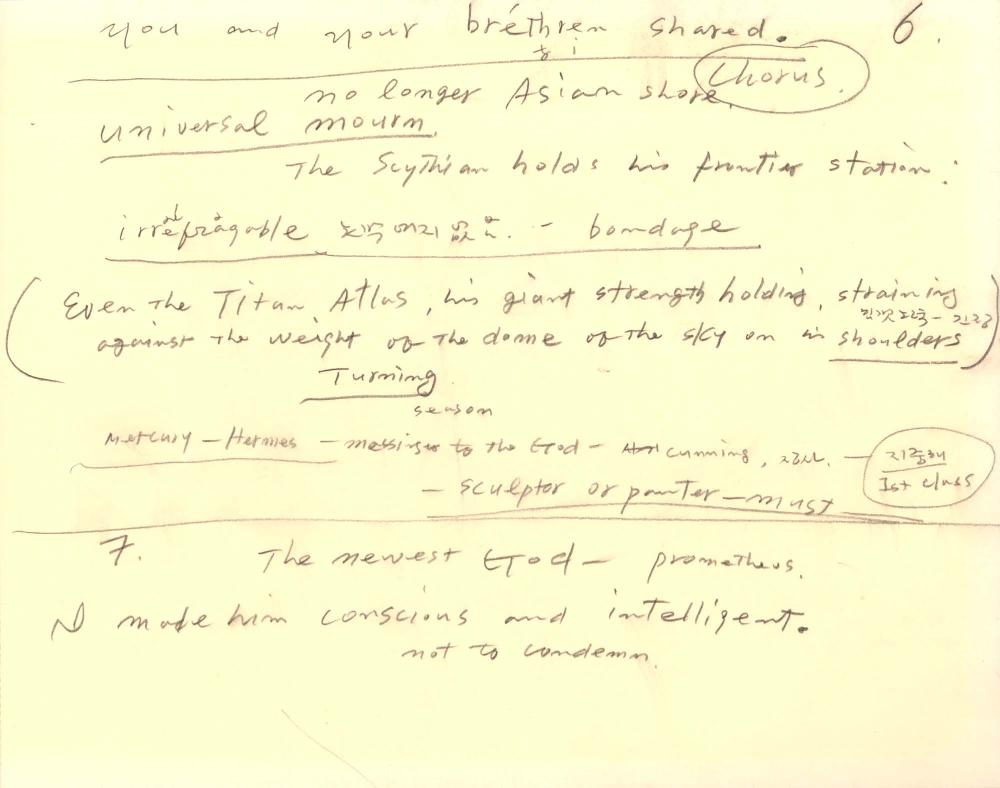 you and your bréthren shared. 6.
Chorus.
no longer Asian shore.
universal mourn.
The Scythian holds his frontier station:
irrefragable 논박 여지 없는. - bondage
(Even the Titan, Atlas, his giant strength holding, straining
against the weight of the dome of the sky on his shoulders)
Turning
season
Mercury - Hermes - messinger to the God - cunning, -
지중해
1st class
- sculptor or painter - must
7. The newest God - prometheus.
I made him conscious and intelligent.
not to condemn.